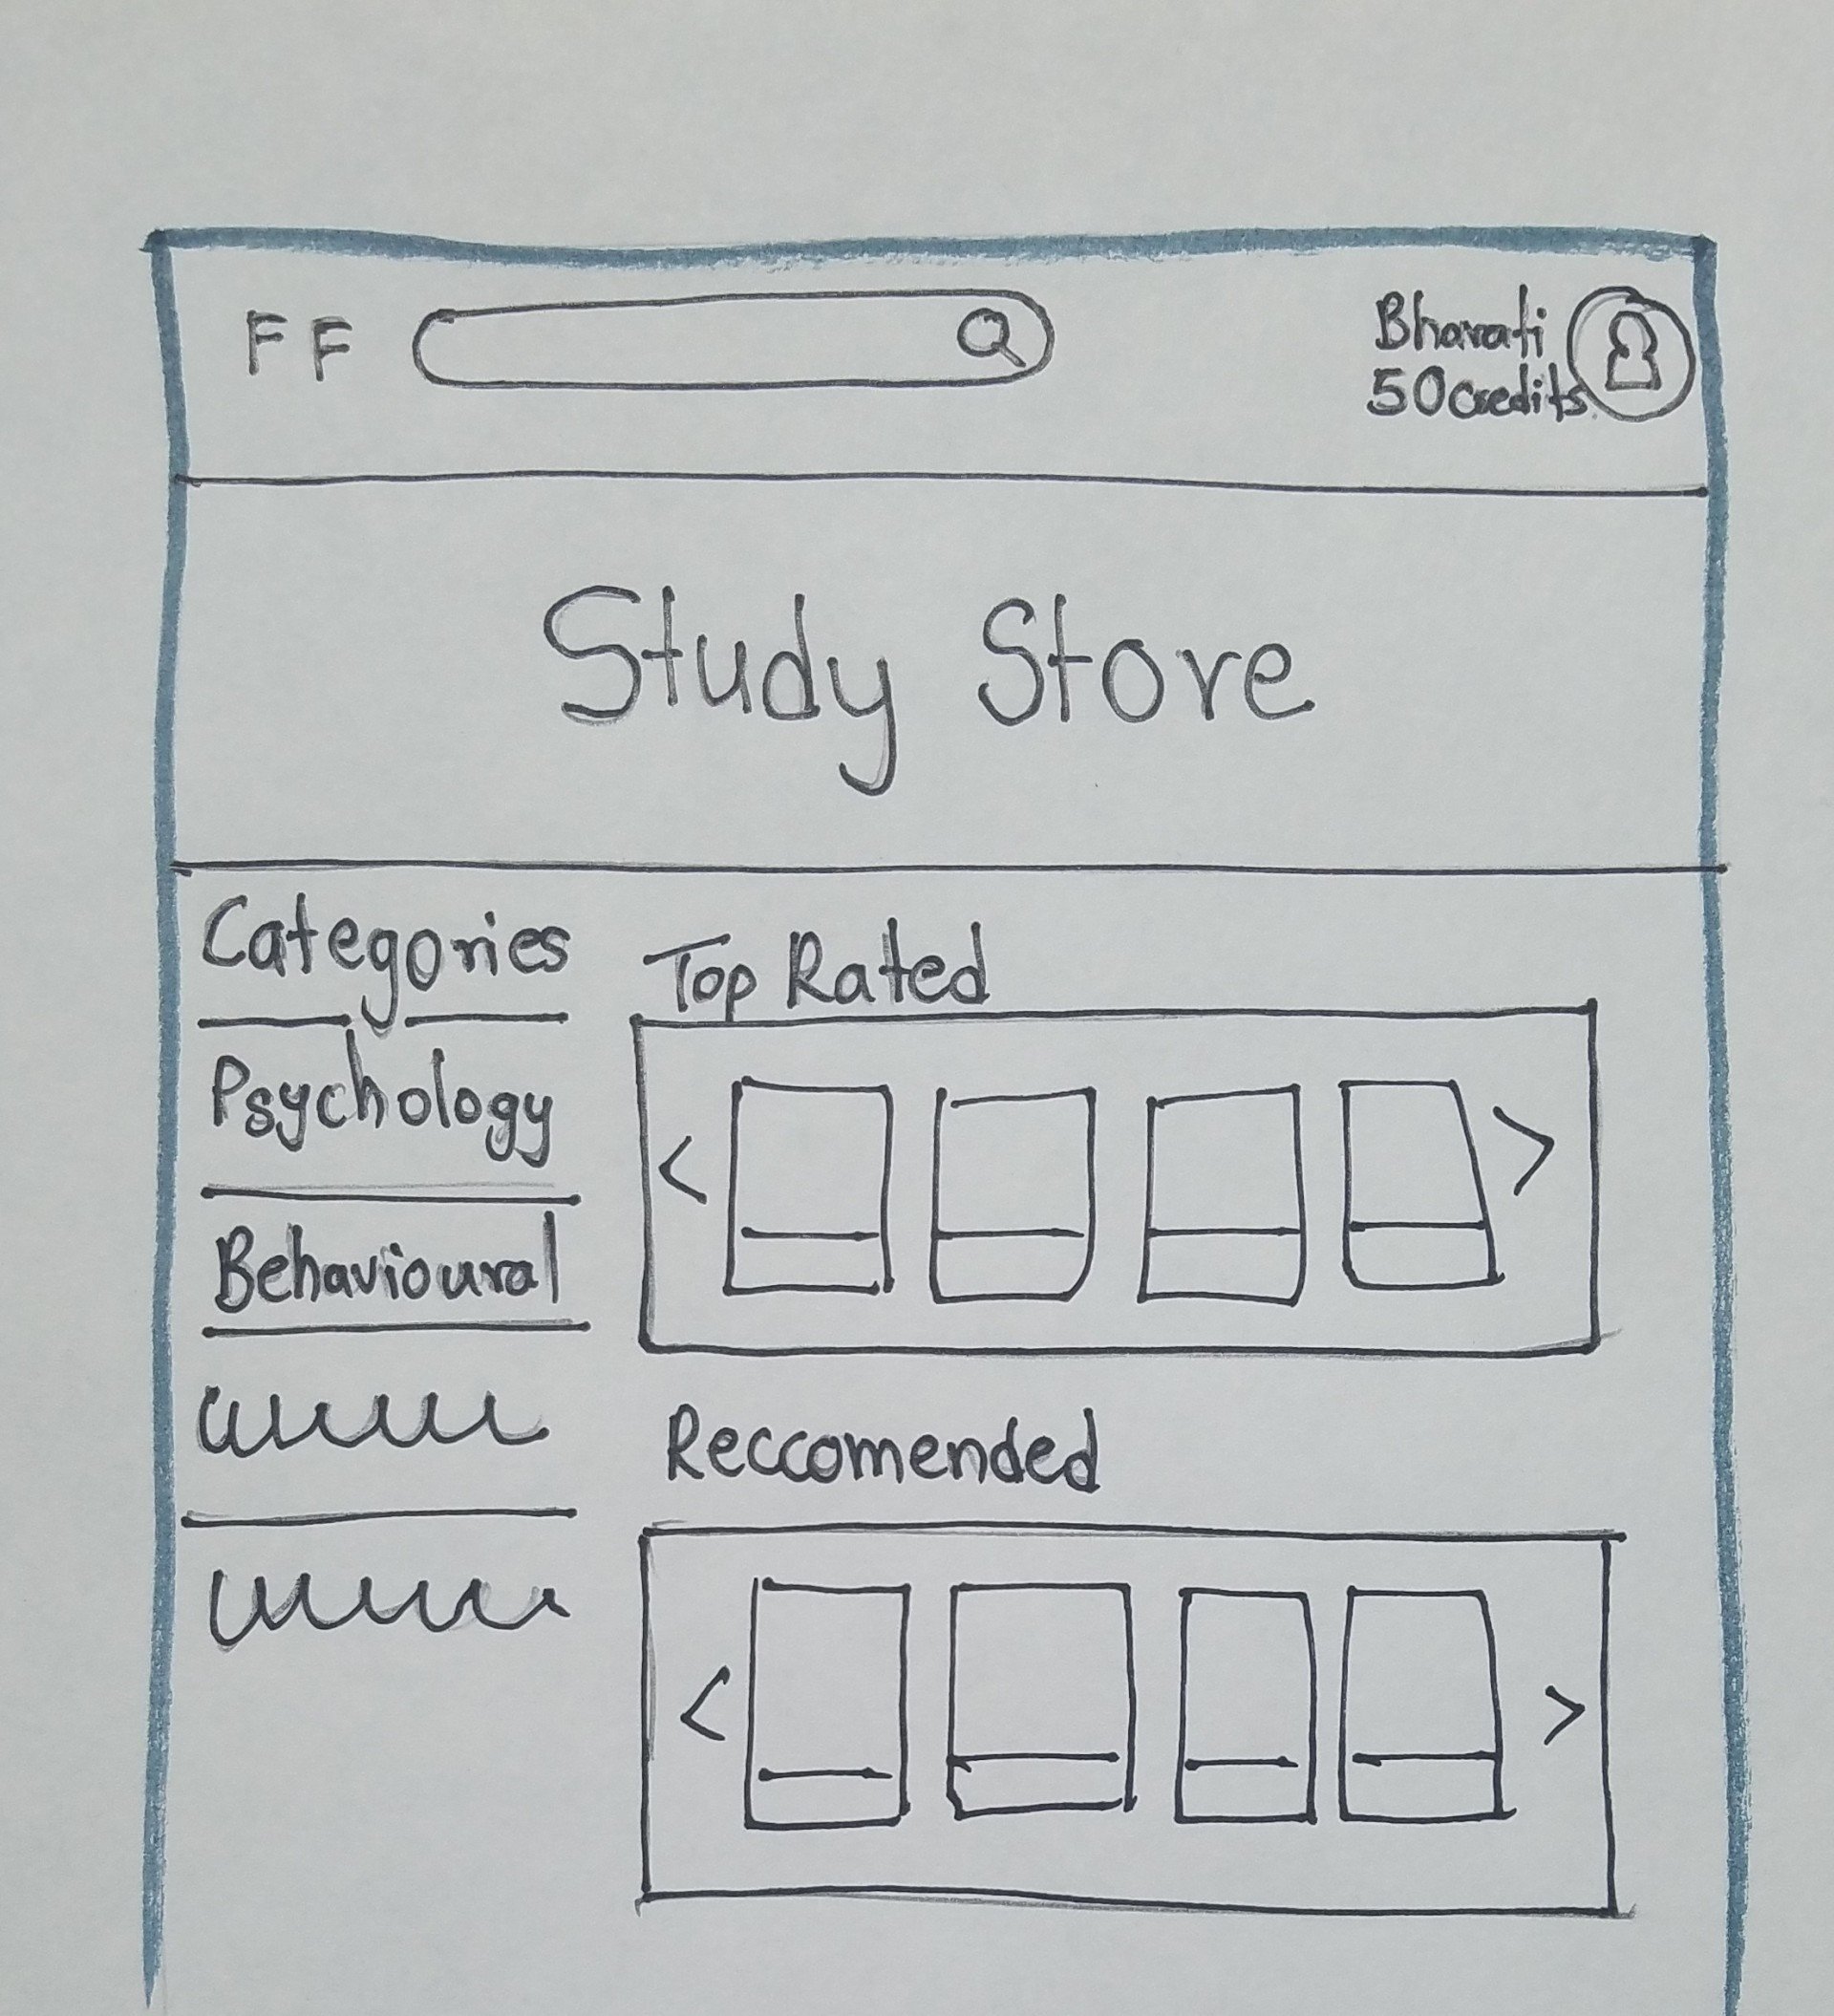 FF
Bharati
50 credits
Study Store
Categories
Psychology
Behavioural
Top Rated
Reccomended